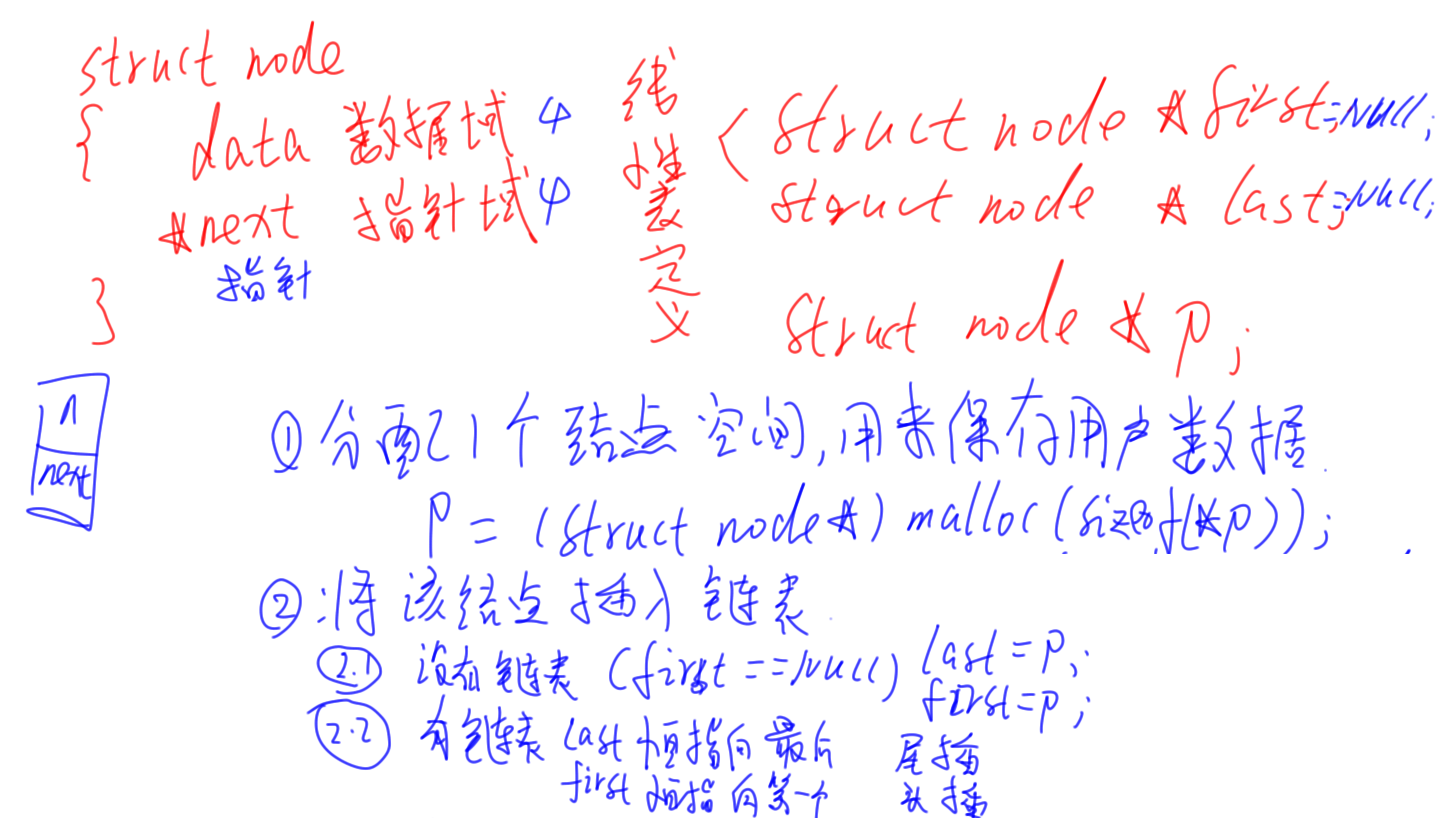 struct node
{ data 数据域 4
*next 指针域 4
指针
}
线性表定义
struct node *first=NULL;
struct node * last=NULL;
struct node * p;
n
next
① 分配1个结点空间,用来保存用户数据.
p = (struct node*) malloc(sizeof(*p));
② 将该结点插入链表.
2.1 没有链表 (first==NULL) last=p;
first=p;
2.2 有链表 last恒指向最后 尾插
first 恒指向第一个 头插